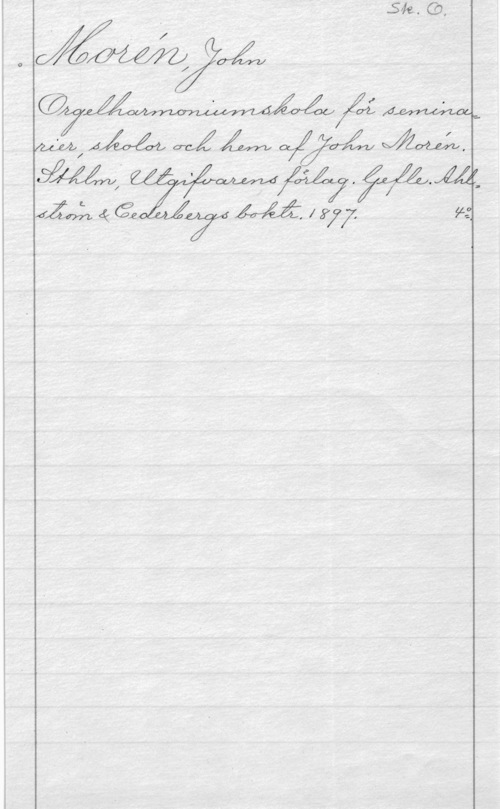 Sk. O.
Morén, John
Orgelharmoniumskola för semina=
rier, skolor och hem af John Morén.
Sthlm, Utgifvarens förlag. Gefle. Ahl=
ström & Cederbergs boktr. 1897. 4:o